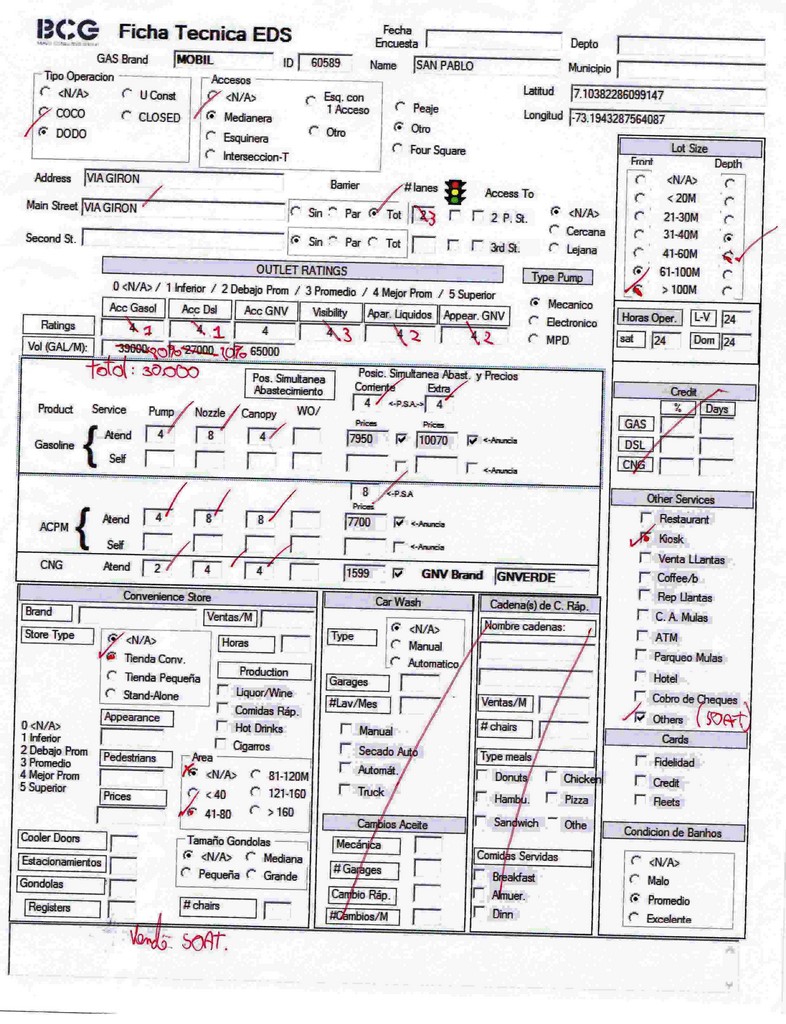 BCG Ficha Tecnica EDS
Fecha Encuesta
Depto
GAS Brand MOBIL ID 60589 Name SAN PABLO Municipio
Tipo Operacion
<N/A> U Const
COCO CLOSED
DODO
Accesos
<N/A> Esq. con 1 Acceso
Medianera
Esquinera Otro
Interseccion-T
Peaje
Otro
Four Square
Latitud 7.10382286099147
Longitud -73.1943287564087
Address VIA GIRON
Barrier # lanes Access To
Main Street VIA GIRON Sin Par Tot 3 2 P. St.
Second St. Sin Par Tot 3rd St.
<N/A>
Cercana
Lejana
Lot Size
Front Depth
<N/A>
< 20M
21-30M
31-40M
41-60M
61-100M
> 100M
OUTLET RATINGS
0 <N/A> / 1 Inferior / 2 Debajo Prom / 3 Promedio / 4 Mejor Prom / 5 Superior
Acc Gasol Acc Dsl Acc GNV Visibility Apar. Liquidos Appear. GNV
Ratings 4 1 4 1 4 4 3 4 2 4 2
Vol (GAL/M): 39000 90% 27000 10% 65000
total: 30.000
Type Pump
Mecanico
Electronico
MPD
Horas Oper. L-V 24
sat 24 Dom 24
Pos. Simultanea Abastecimiento
Posic. Simultanea Abast. y Precios
Corriente Extra
4 <-P.S.A.-> 4
Product Service Pump Nozzle Canopy WO/ Prices Prices
Gasoline Atend 4 8 4 7950 10070 <-Anuncia
Self <-Anuncia
8 <-P.S.A
Prices
ACPM Atend 4 8 8 7700 <-Anuncia
Self <-Anuncia
CNG Atend 2 4 4 1599 GNV Brand GNVERDE
Credit
% Days
GAS
DSL
CNG
Other Services
Restaurant
Kiosk
Venta LLantas
Coffee/b
Rep Llantas
C. A. Mulas
ATM
Parqueo Mulas
Hotel
Cobro de Cheques
Others (SOAT)
Cards
Fidelidad
Credit
Fleets
Condicion de Banhos
<N/A>
Malo
Promedio
Excelente
Convenience Store
Brand Ventas/M
Store Type
<N/A>
Tienda Conv.
Tienda Pequeña
Stand-Alone
Horas
Production
Liquor/Wine
Comidas Ráp.
Hot Drinks
Cigarros
0 <N/A>
1 Inferior
2 Debajo Prom
3 Promedio
4 Mejor Prom
5 Superior
Appearance
Pedestrians
Prices
Area
<N/A> 81-120M
< 40 121-160
41-80 > 160
Cooler Doors
Estacionamientos
Gondolas
Registers
Tamaño Gondolas
<N/A> Mediana
Pequeña Grande
# chairs
Car Wash
Type
<N/A>
Manual
Automatico
Garages
#Lav/Mes
Manual
Secado Auto
Automát.
Truck
Cambios Aceite
Mecánica
# Garages
Cambio Ráp.
#Cambios/M
Cadena(s) de C. Ráp.
Nombre cadenas:
Ventas/M
# chairs
Type meals
Donuts Chicken
Hambu. Pizza
Sandwich Othe
Comidas Servidas
Breakfast
Almuer.
Dinn
Vende SOAT.